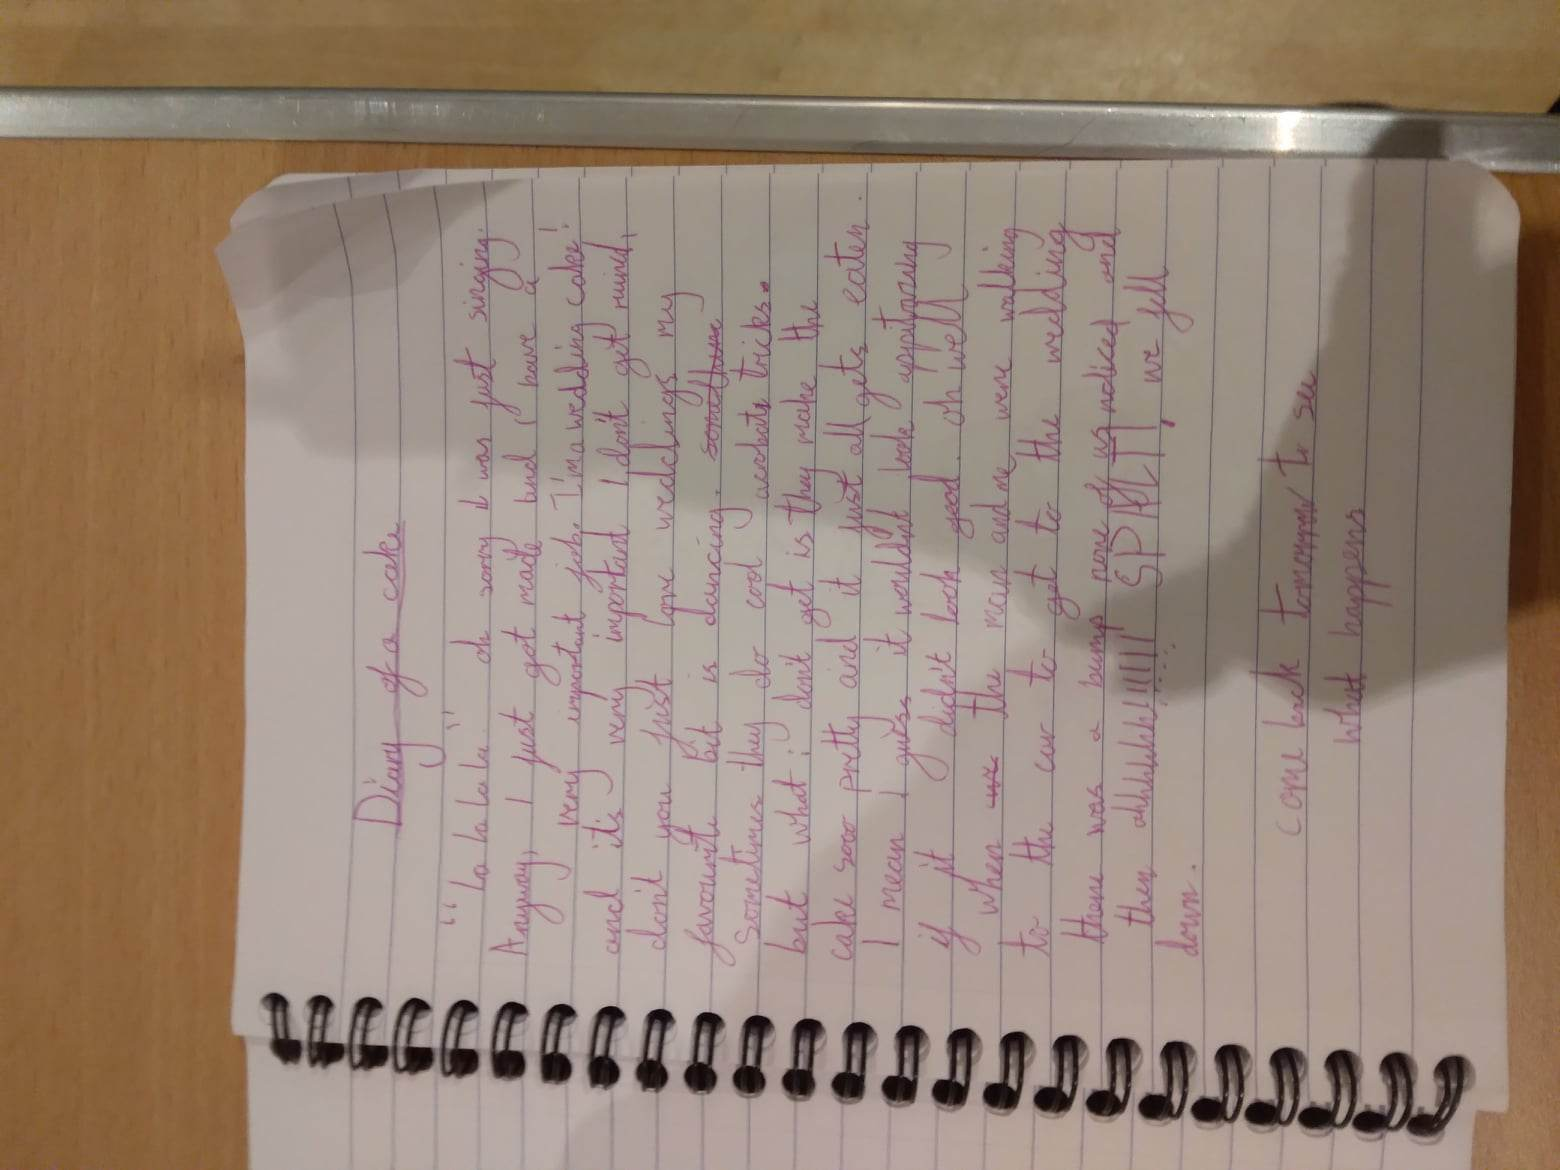 Diary of a cake
"La la la la" oh sorry I was just singing.
Anyway, I just got made and I have a
very important job. I'm a wedding cake!
and it's very important I don't get ruind,
don't you just love weddings my
favourite bit is dancing. somethime
Sometimes they do cool acrobats tricks.
but what i don't get is they make the
cake sooo pretty and it just all gets eaten.
I mean I guess it wouldn't look
if it didn't look good. oh well
when we the man and me were walking
to the car to get to the wedding
there was a bump none of us noticed and
then, ahhhhhh!!!!!! SPALT, we fell
down.
come back tomorrow to see
what happens